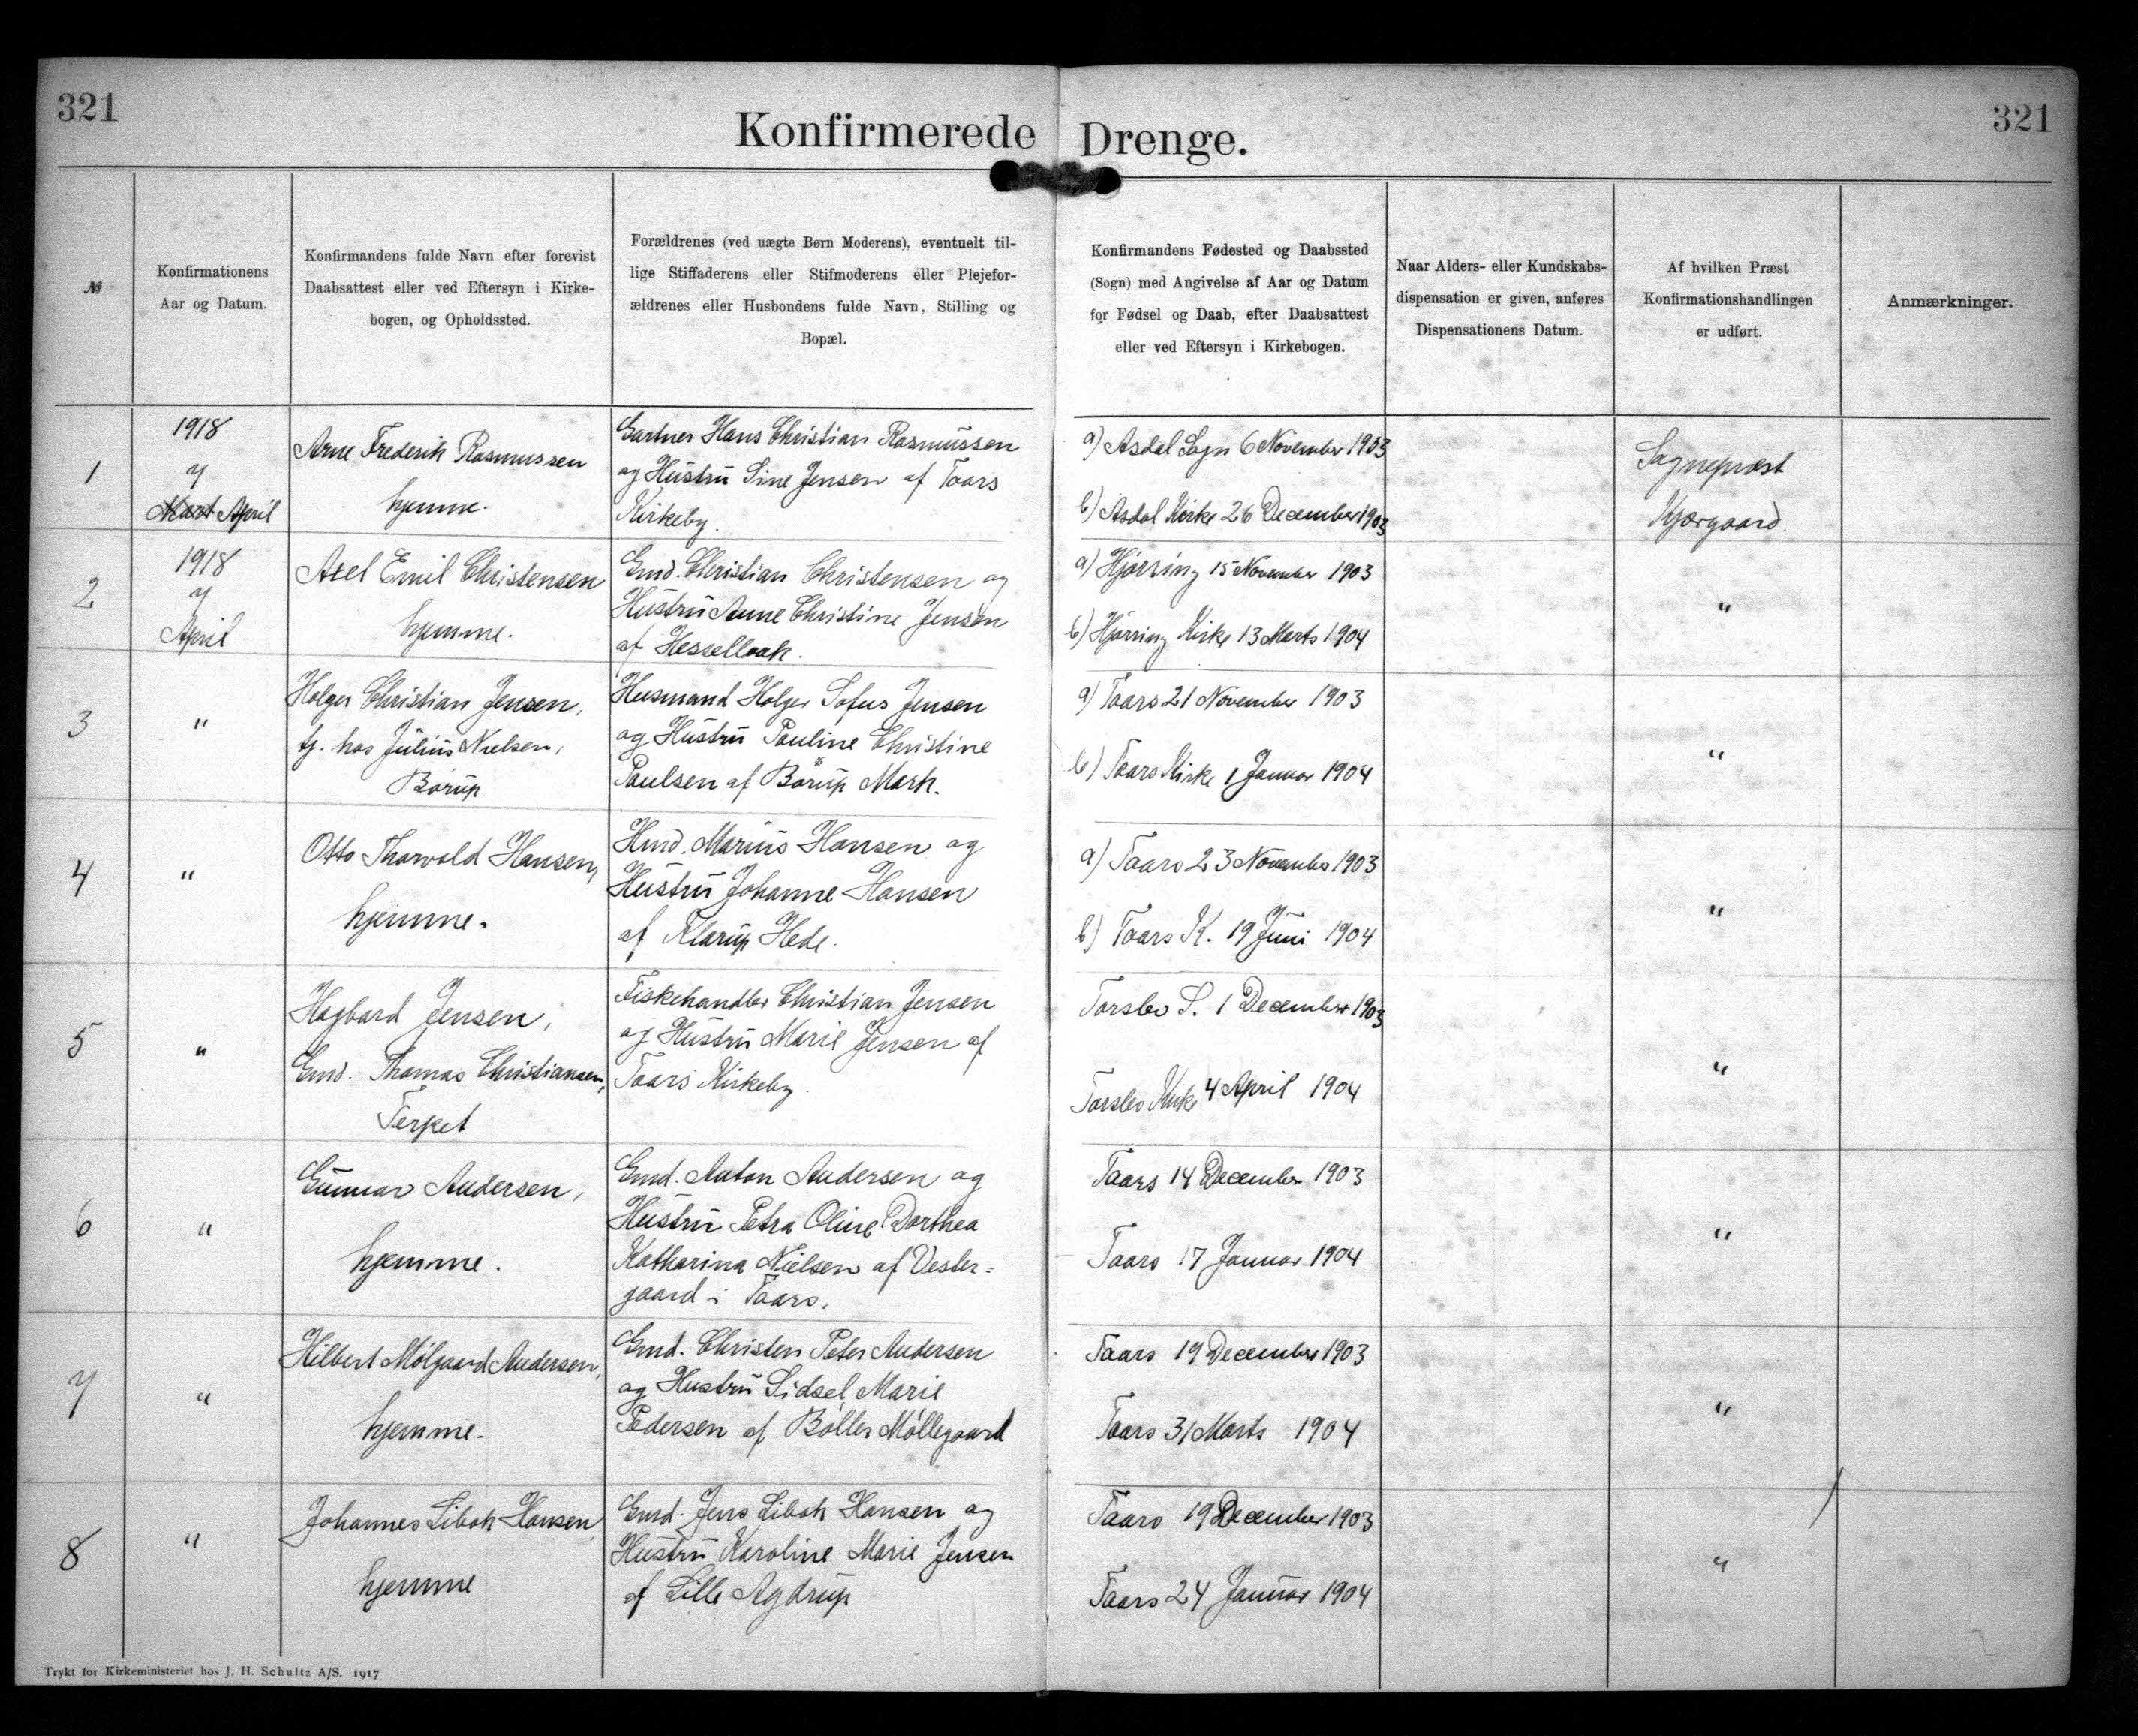 321
321
Konfirmerede Drenge.
№
Konfirmationens
Aar og Datum.
Konfirmandens fulde Navn efter forevist
Daabsattest eller ved Eftersyn i Kirke-
bogen, og Opholdssted.
Forældrenes (ved uægte Børn Moderens), eventuelt til-
lige Stiffaderens eller Stifmoderens eller Plejefor-
ældrenes eller Husbondens fulde Navn, Stilling og
Bopæl.
Konfirmandens Fødested og Daabssted
(Sogn) med Angivelse af Aar og Datum
for Fødsel og Daab, efter Daabsattest
eller ved Eftersyn i Kirkebogen.
Naar Alders- eller Kundskabs-
dispensation er given, anføres
Dispensationens Datum.
Af hvilken Præst
Konfirmationshandlingen
er udført.
Anmærkninger.
1
1918
7
April
Arne Frederik Rasmussen
hjemme.
Gartner Hans Christian Rasmussen
og Hustru Sine Jensen af Taars
Kirkeby.
a) Asdal Sogn 6 November 1903
b) Asdal Kirke 26 December 1903
Sognepræst
Kjærgaard.
2
1918
7
April
Axel Emil Christensen
hjemme.
Gmd. Christian Christensen og
Hustru Anne Christine Jensen
af
a) Hjørring 15 November 1903
b) Hjørring Kirke 13 Marts 1904
"
3
"
Holger Christian Jensen,
tj. hos Julius Nielsen,
Børup
Husmand Holger Sofus Jensen
og Hustru Pauline Christine
Poulsen af Børup Mark.
a) Taars 21 November 1903
b) Taars Kirke 1 Januar 1904
"
4
"
Otto Thorvald Hansen,
hjemme.
Hmd. Marius Hansen og
Hustru Johanne Hansen
af Klarup Hede.
a) Taars 23 November 1903
b) Taars K. 19 Juni 1904
"
5
"
Hagbard Jensen,
Gmd. Thomas Christiansen,
Terpet
Fiskehandler Christian Jensen
og Hustru Marie Jensen af
Taars Kirkeby.
Torslev S. 1 December 1903
Torslev Kirke 4 April 1904
"
6
"
Gunnar Andersen,
hjemme.
Gmd. Anton Andersen og
Hustru Petra Oline Dorthea
Katharina Nielsen af Vester-
gaard i Taars.
Taars 14 December 1903
Taars 17 Januar 1904
"
7
"
Hilbert Mølgaard Andersen,
hjemme.
Gmd. Christen Peter Andersen
og Hustru Sidsel Marie
Pedersen af Bøller Møllegaard
Taars 19 December 1903
Taars 31 Marts 1904
"
8
"
Johannes Libok Hansen
hjemme
Gmd. Jens Libok Hansen og
Hustru Karoline Marie Jensen
af Lille Agdrup
Taars 19 December 1903
Taars 24 Januar 1904
"
Trykt for Kirkeministeriet hos J. H. Schultz A/S. 1917